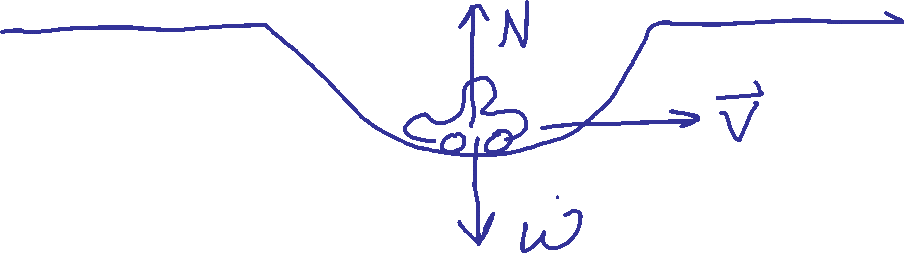 N
V
W